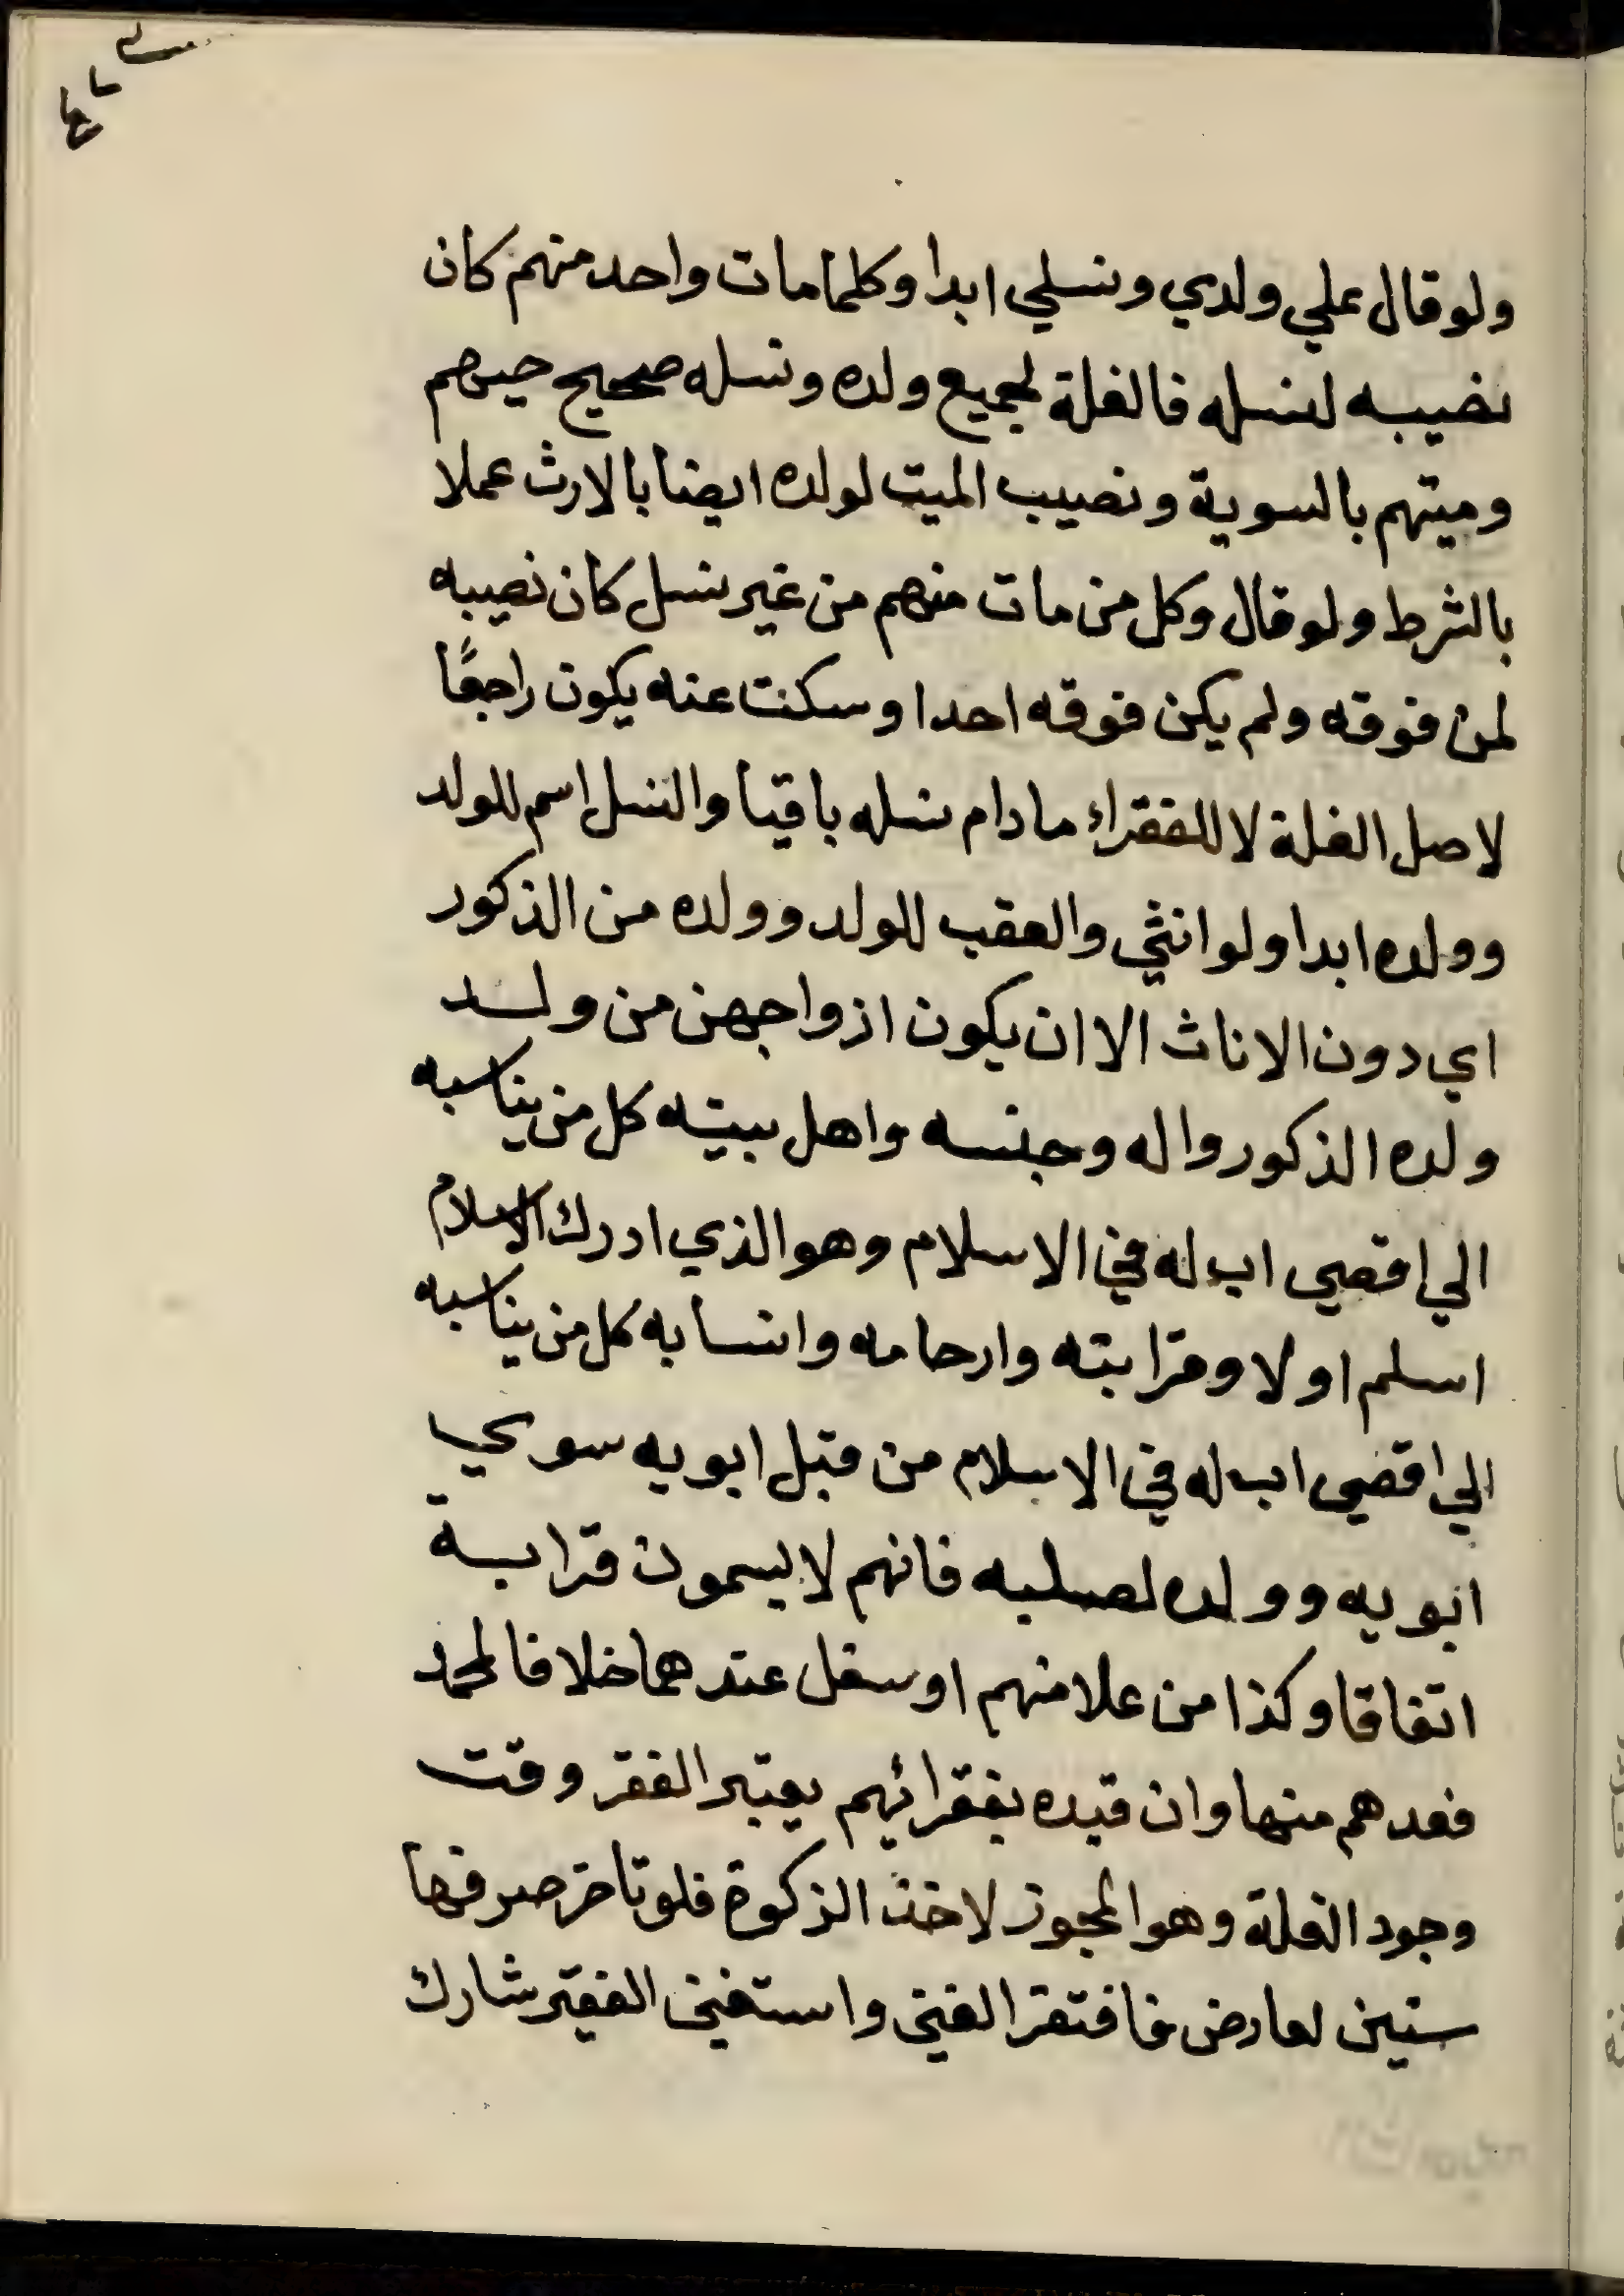 ولو قال علي ولدي ونسلي ابدا وكلما مات واحد منهم كان
نصيبه لنسله فالغلة لجميع ولده ونسله صحيح حيهم
وميتهم بالسوية ونصيب الميت لولده ايضا بالارث عملا
بالشرط ولو قال وكل من مات منهم من غير نسل كان نصيبه
لمن فوقه ولم يكن فوقه احدا وسكت عنه يكون راجعًا
لاصل الغلة لا للفقراء ما دام نسله باقيا والنسل اسم للولد
وولده ابدا ولو انثي والعقب للولد وولده من الذكور
اي دون الاناث الا ان يكون ازواجهن من ولد
ولده الذكور واله وجنسه واهل بيته كل من يناسبه
الي اقصي اب له في الاسلام وهو الذي ادرك الاسلام
اسلم اولا وقرابته وارحامه وانسابه كل من يناسبه
الي اقصي اب له في الاسلام من قبل ابويه سوي
ابويه وولده لصلبه فانهم لا يسمون قرابة
اتفاقا وكذا من علا منهم او سفل عندهما خلافا لمحمد
فعدهم منها وان قيده بفقرائهم يعتبر الفقر وقت
وجود الغلة وهو المجوز لاخذ الزكوة فلو تاخر صرفها
سنين لعارض فافتقر الغني واستغني الفقير شارك